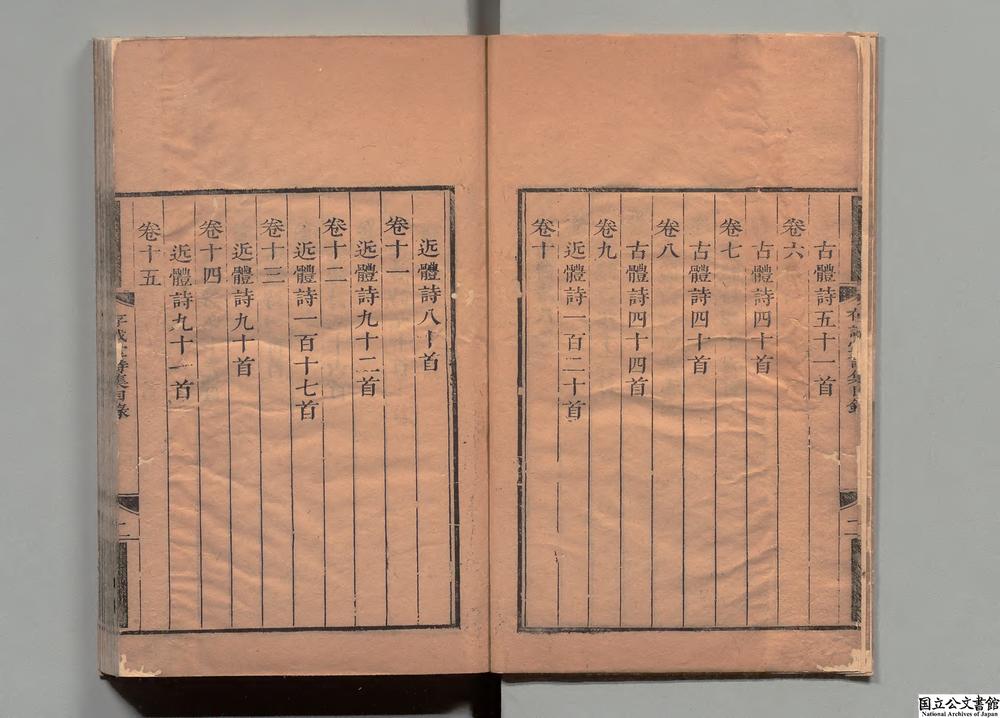 古體詩五十一首
卷六
古體詩四十首
卷七
古體詩四十首
卷八
古體詩四十四首
卷九
近體詩一百二十首
卷十
近體詩八十首
卷十一
近體詩九十二首
卷十二
近體詩一百十七首
卷十三
近體詩九十首
卷十四
近體詩九十一首
卷十五
詩集目錄
二
国立公文書館
National Archives of Japan